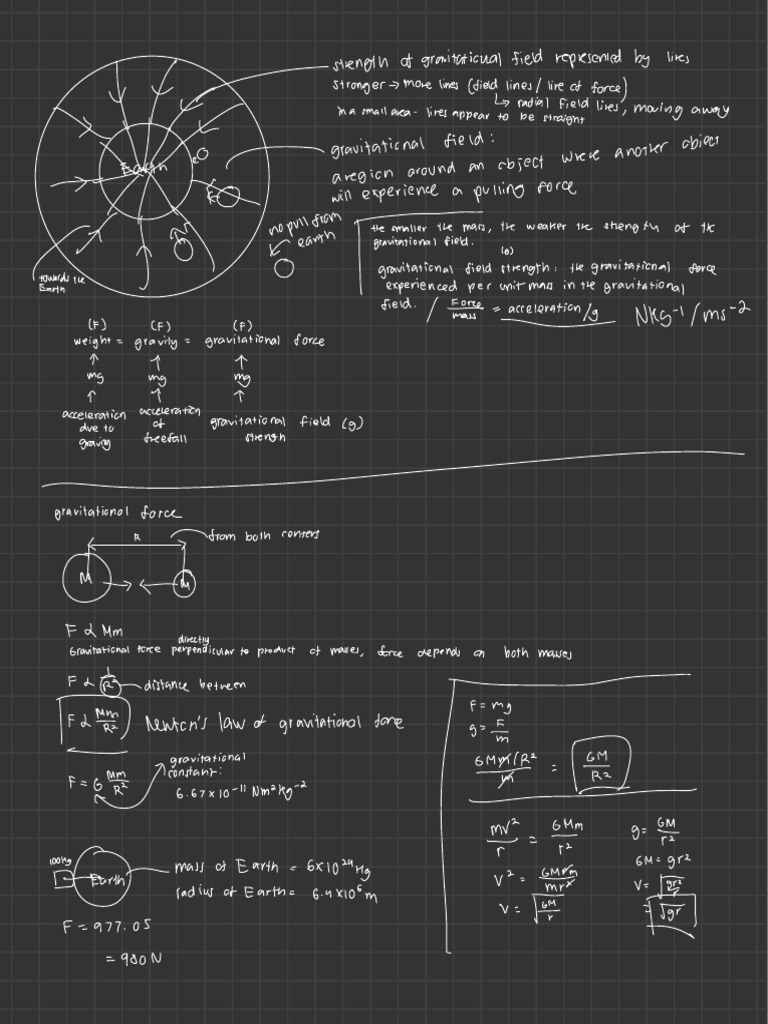 strength of gravitational field represented by lines
stronger → more lines (field lines / line of force)
↳ radial field lines, moving away
in a small area - lines appear to be straight
gravitational field:
a region around an object where another object
will experience a pulling force
Earth
no pull from
earth
towards the
Earth
the smaller the mass, the weaker the strength of the
gravitational field.
(g)
gravitational field strength: the gravitational force
experienced per unit mass in the gravitational
field. / Force/mass = acceleration/g Nkg⁻¹/ms⁻²
(F) (F) (F)
weight = gravity = gravitational force
↑ ↑ ↑
mg mg mg
↑ ↑ ↑
acceleration due to graving
acceleration of freefall
gravitational field (g) strength
gravitational force
R
from both centers
M m
F α Mm
directly
Gravitational force perpendicular to product of mases, force depends on both masses
F α 1/R² distance between
F α Mm/R² Newton's law of gravitational force
F = G Mm/R²
gravitational
constant:
6.67 x 10⁻¹¹ Nm²kg⁻²
100kg
Earth
mass of Earth = 6x10²⁴ kg
radius of Earth = 6.4x10⁶ m
F = 977.05
= 980 N
F = mg
g = F/m
GMm/R² / m = GM/R²
mv²/r = GMm/r²
V² = GMrm/mr²
V = √GM/r
g = GM/r²
GM = gr²
V = √gr²/r
= √gr